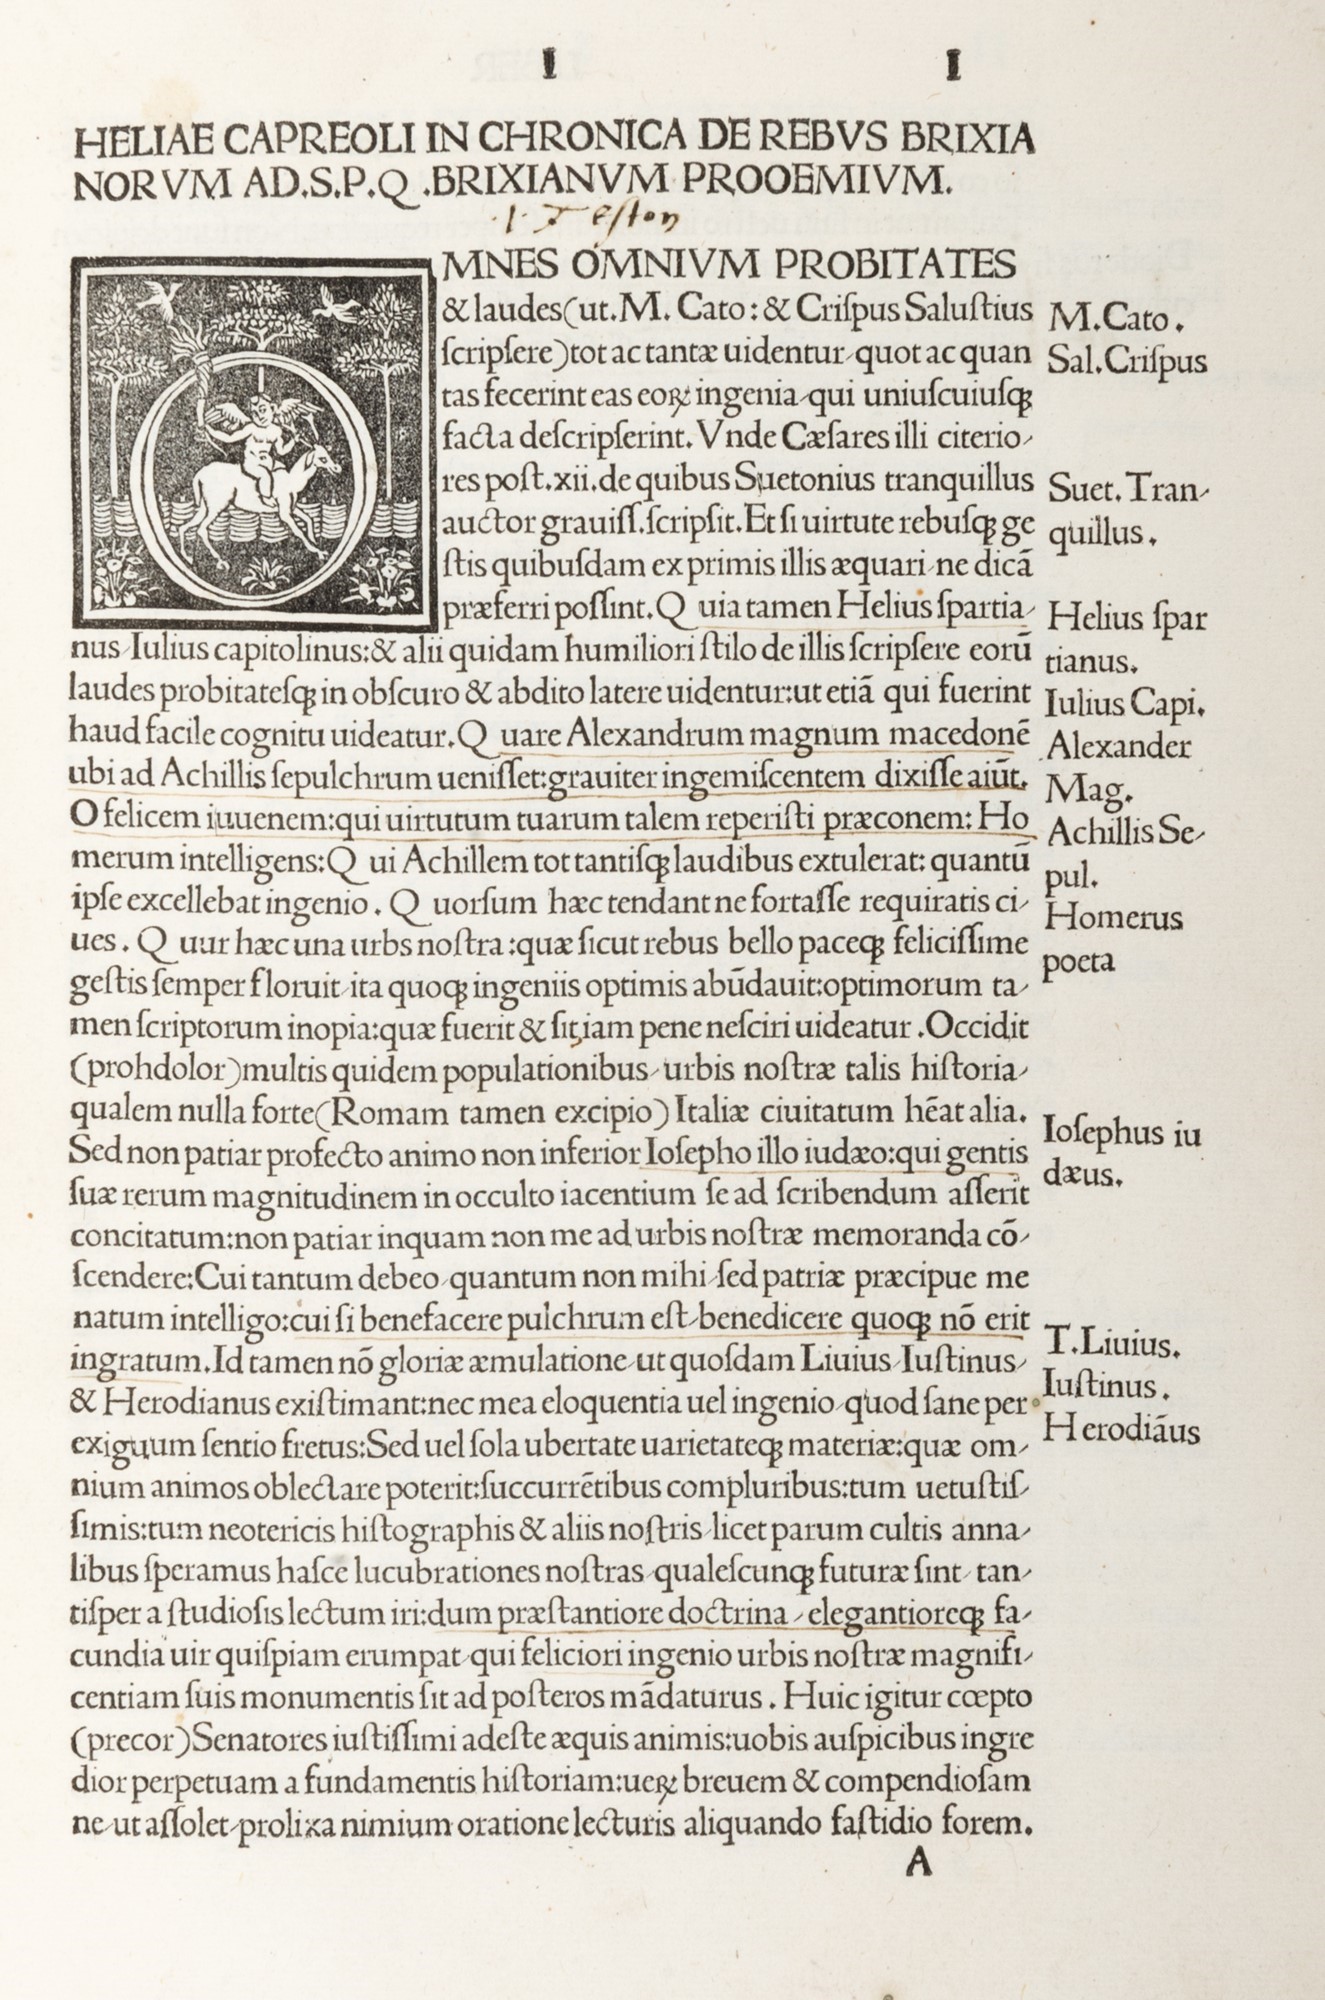 I I
HELIAE CAPREOLI IN CHRONICA DE REBVS BRIXIA
NORVM AD.S.P.Q.BRIXIANVM PROOEMIVM.
OMNES OMNIVM PROBITATES
& laudes(ut.M. Cato: & Criſpus Saluſtius
ſcripſere)tot ac tantæ uidentur⸝quot ac quan
tas fecerint eas eoꝝ ingenia⸝qui uniuſcuiuſꝗ
facta deſcripſerint. Vnde Cæſares illi citerio⸝
res poſt.xii.de quibus Suetonius tranquillus
auctor grauiſſ.ſcripſit.Et ſi uirtute rebuſꝗ ge
ſtis quibuſdam ex primis illis æquari⸝ne dicā
præferri poſſint.Quia tamen Helius ſpartia⸝
nus⸝Iulius capitolinus:& alii quidam humiliori ſtilo de illis ſcripſere eorū
laudes probitateſꝗ in obſcuro & abdito latere uidentur:ut etiā qui fuerint
haud facile cognitu uideatur.Quare Alexandrum magnum macedonē
ubi ad Achillis ſepulchrum ueniſſet:grauiter ingemiſcentem dixiſſe aiūt.
O felicem iuuenem:qui uirtutum tuarum talem reperiſti præconem: Ho
merum intelligens:Qui Achillem tot tantiſꝗ laudibus extulerat: quantū
ipſe excellebat ingenio. Quorſum hæc tendant ne fortaſſe requiratis ci⸝
ues. Quur hæc una urbs noſtra:quæ ſicut rebus bello paceꝗ feliciſſime
geſtis ſemper floruit⸝ita quoꝗ ingeniis optimis abūdauit:optimorum ta⸝
men ſcriptorum inopia:quæ fuerit & ſit,iam pene neſciri uideatur .Occidit
(prohdolor)multis quidem populationibus⸝urbis noſtræ talis hiſtoria⸝
qualem nulla forte(Romam tamen excipio) Italiæ ciuitatum hēat alia.
Sed non patiar profecto animo non inferior Ioſepho illo iudæo:qui gentis
ſuæ rerum magnitudinem in occulto iacentium ſe ad ſcribendum aſſerit
concitatum:non patiar inquam non me ad urbis noſtræ memoranda cō⸝
ſcendere:Cui tantum debeo⸝quantum non mihi⸝ſed patriæ præcipue me
natum intelligo:cui ſi benefacere pulchrum eſt⸝benedicere quoꝗ nō erit
ingratum.Id tamen nō gloriæ æmulatione⸝ut quoſdam Liuius⸝Iuſtinus⸝
& Herodianus exiſtimant:nec mea eloquentia uel ingenio⸝quod ſane per
exiguum ſentio fretus:Sed uel ſola ubertate uarietateꝗ materiæ:quæ om⸝
nium animos oblectare poterit:ſuccurrētibus compluribus:tum uetuſtiſ⸝
ſimis:tum neotericis hiſtographis & aliis noſtris⸝licet parum cultis anna⸝
libus ſperamus haſce lucubrationes noſtras⸝qualeſcunꝗ futuræ ſint⸝tan⸝
tiſper a ſtudioſis lectum iri:dum præſtantiore doctrina⸝elegantioreꝗ fa⸝
cundia uir quiſpiam erumpat⸝qui feliciori ingenio urbis noſtræ magnifi⸝
centiam ſuis monumentis ſit ad poſteros mādaturus. Huic igitur cœpto
(precor)Senatores iuſtiſſimi adeſte æquis animis:uobis auſpicibus ingre
dior perpetuam a fundamentis hiſtoriam:ueꝝ breuem & compendioſam
ne⸝ut aſſolet⸝prolixa nimium oratione lecturis aliquando faſtidio forem.
A
M.Cato.
Sal.Criſpus
Suet.Tran⸝
quillus.
Helius ſpar
tianus.
Iulius Capi.
Alexander
Mag.
Achillis Se⸝
pul.
Homerus
poeta
Ioſephus iu
dæus.
T.Liuius.
Iuſtinus.
Herodiāus